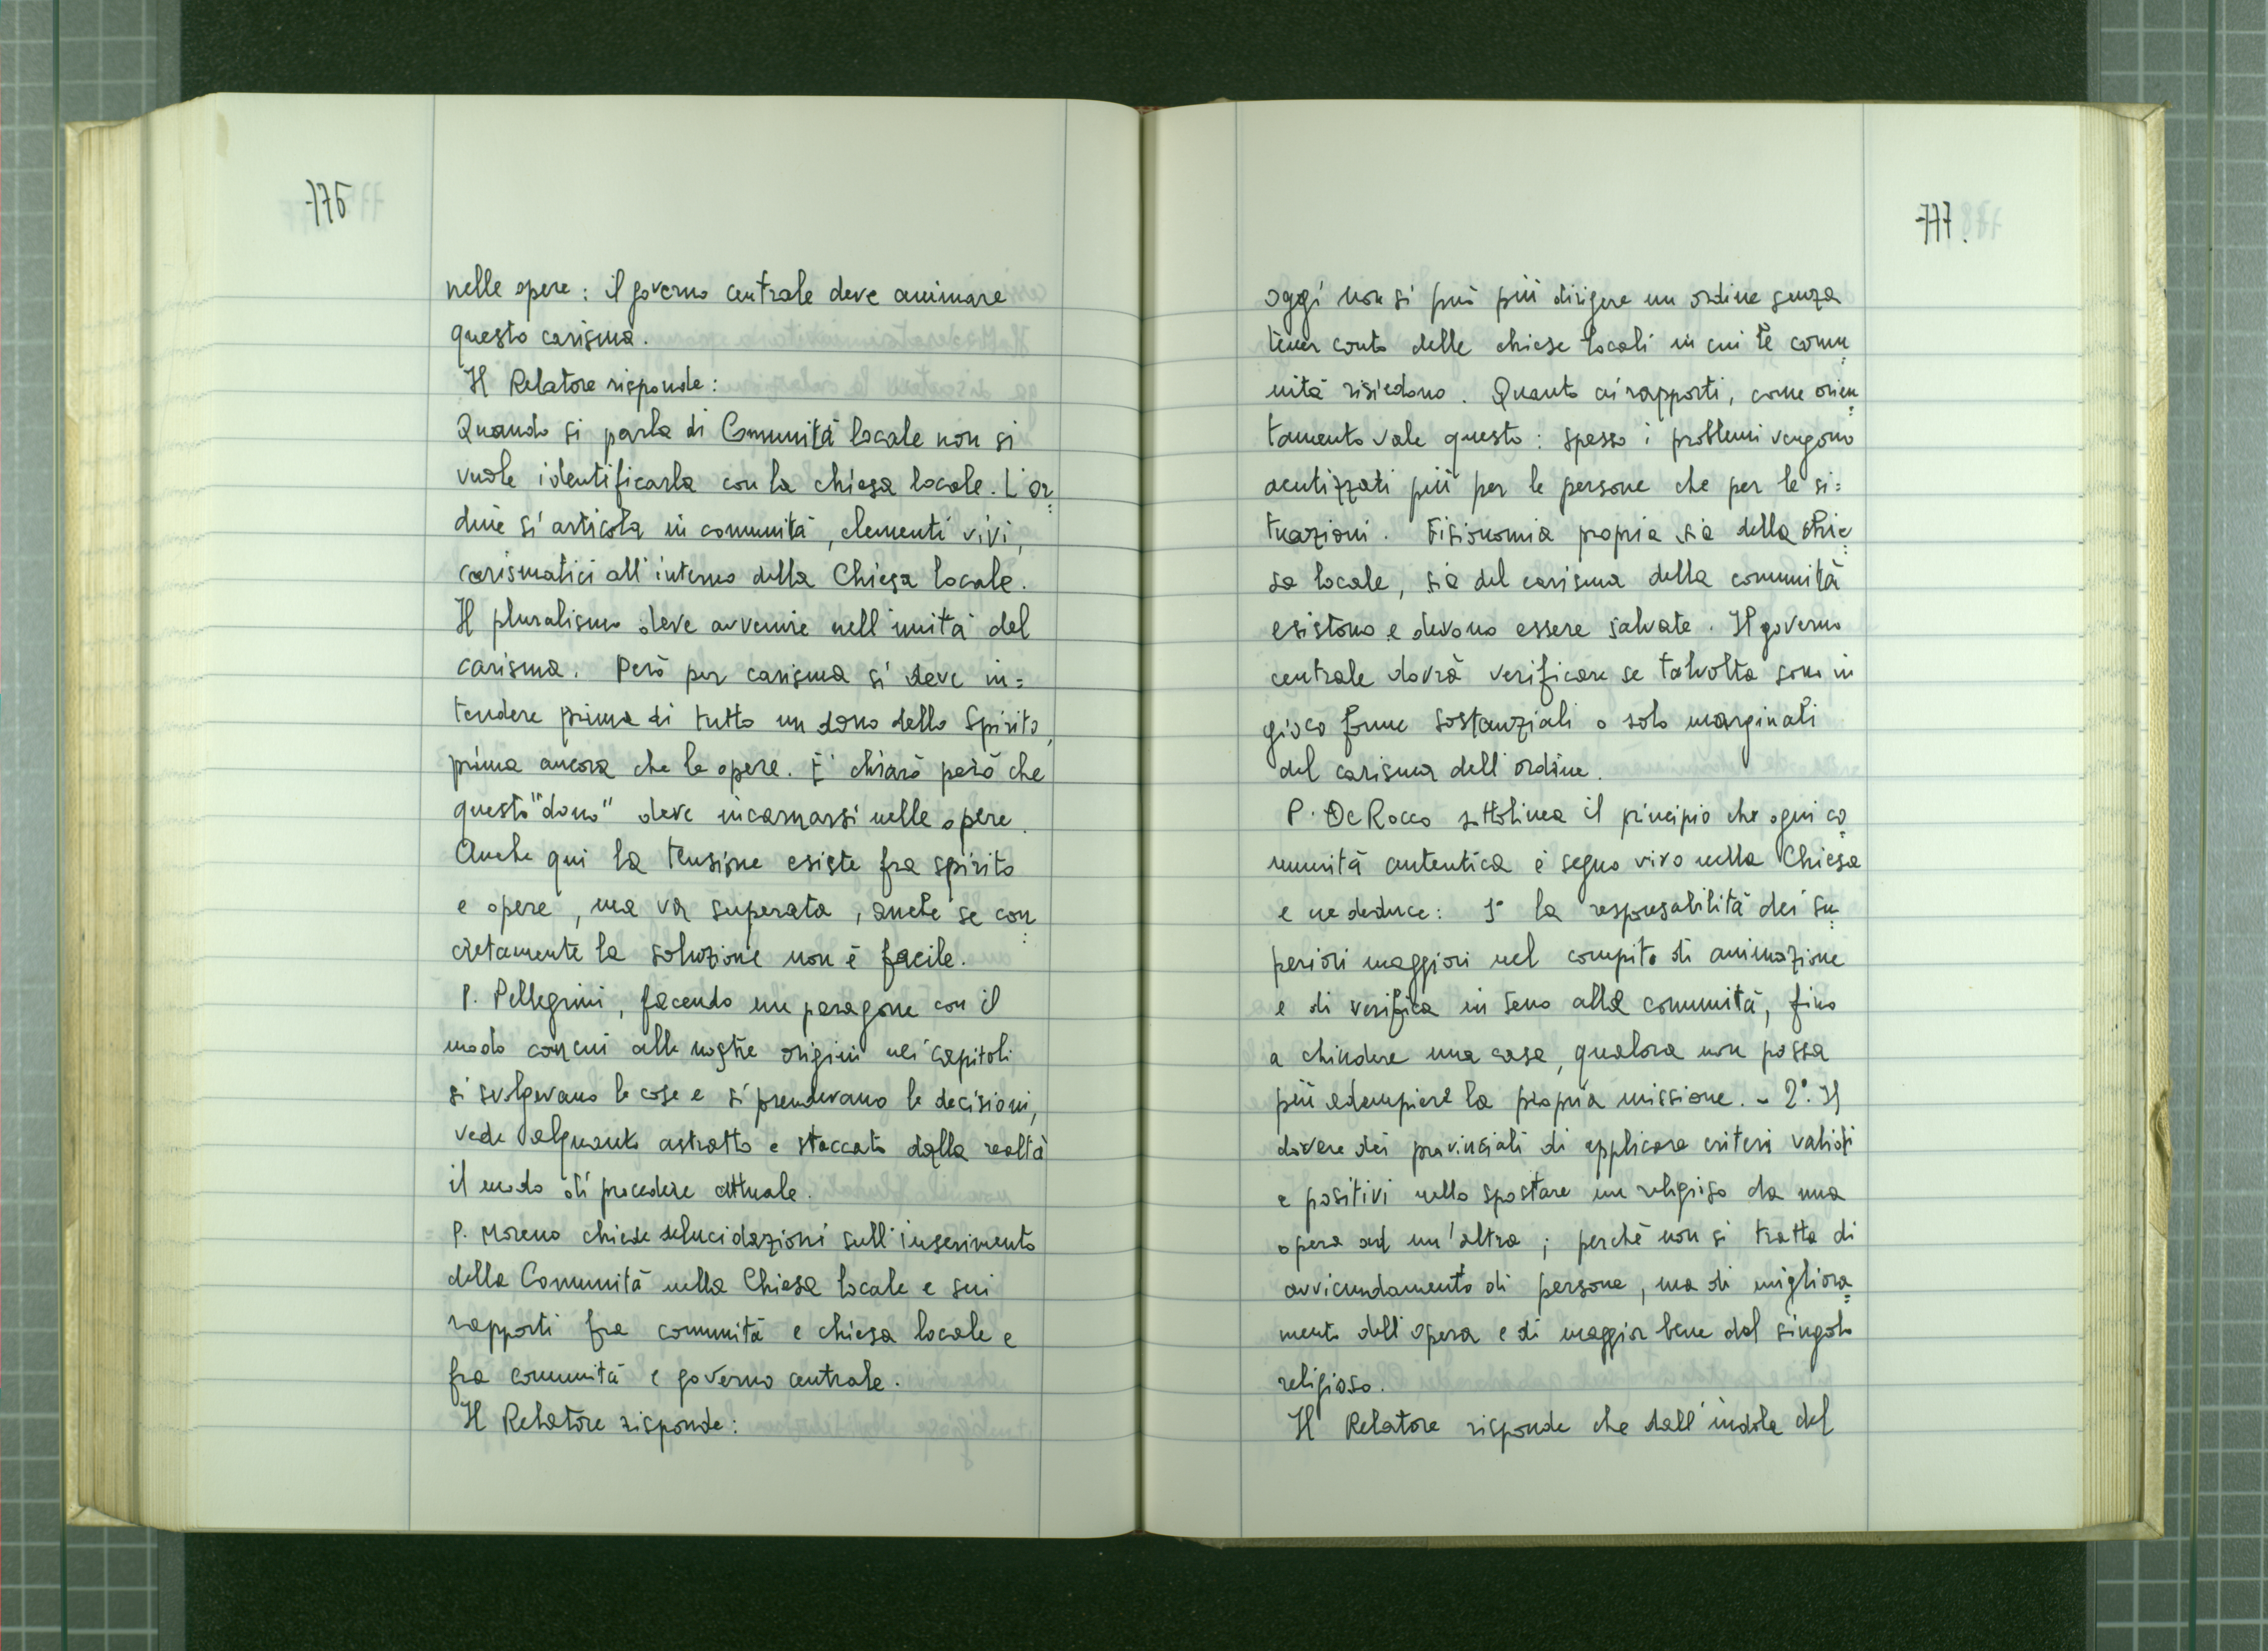 776
nelle opere : il governo centrale deve animare
questo carisma.
Il Relatore risponde :
Quando si parla di Comunità locale non si
vuole identificarla con la chiesa locale. L'or=
dine si articola in comunità, elementi vivi,
carismatici all'interno della Chiesa locale.
Il pluralismo deve avvenire nell'unità del
carisma. Però per carisma si deve in=
tendere prima di tutto un dono dello Spirito,
prima ancora che le opere. E' chiaro però che
questo "dono" deve incarnarsi nelle opere.
Anche qui la tensione esiste fra spirito
e opere, ma va superata, anche se con=
cretamente la soluzione non è facile.
P. Pellegrini, facendo un paragone con il
modo con cui alle nostre origini nei capitoli
si svolgevano le cose e si prendevano le decisioni,
vede alquanto astratto e staccato dalla realtà
il modo di procedere attuale.
P. Moreno chiede delucidazioni sull'inserimento
della Comunità nella Chiesa locale e sui
rapporti fra comunità e chiesa locale e
fra comunità e governo centrale.
Il Relatore risponde :
777.
oggi non si può più dirigere un ordine senza
tener conto delle chiese locali in cui le comu=
nità risiedono. Quanto ai rapporti, come orien=
tamento vale questo : spesso i problemi vengono
acutizzati più per le persone che per le si=
tuazioni. Fisionomia propria sia della chie=
sa locale, sia del carisma della comunità
esistono e devono essere salvate. Il governo
centrale dovrà verificare se talvolta sono in
gioco forme sostanziali o solo marginali
del carisma dell'ordine.
P. De Rocco sottolinea il principio che ogni co=
munità autentica è segno vivo nella Chiesa
e ne deduce : 1° la responsabilità dei su=
periori maggiori nel compito di animazione
e di verifica in seno alla comunità, fino
a chiudere una casa, qualora non possa
più adempiere la propria missione. - 2° Il
dovere dei provinciali di applicare criteri validi
e positivi nello spostare un religioso da una
opera ad un'altra ; perchè non si tratta di
avvicendamento di persone, ma di migliora=
mento dell'opera e di maggior bene del singolo
religioso.
Il Relatore risponde che dall'indole del